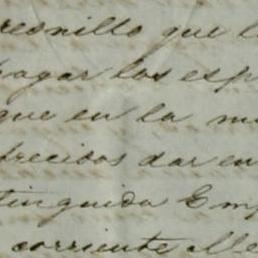 resnillo que l
pagar los esp
que en la m
frecidos dar en
tinguida Emp
corriente Me